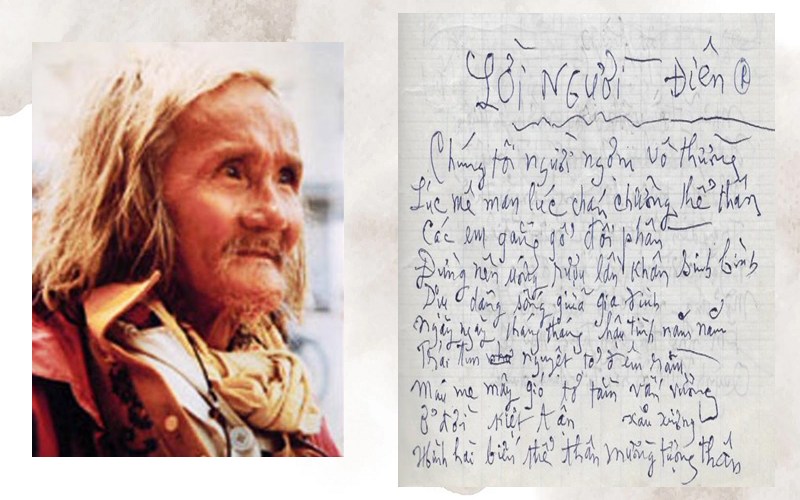 LỜI NGƯỜI ĐIÊN
Chúng tôi người ngợm vô thường
Lúc mê man lúc chán chường thể thân
Các em gắng gổ đời phần
Đừng nên uống rượu lần khân bình bình
Dịu dàng sống giữa gia đình
Ngày ngày tháng tháng hậu tình năm năm
Trái tim nguyệt tở rằm
Máu me mây gió tở tàm vấn vương
Ở đời kiệt tận xấu xương
Hình hài biến thể thân mường tượng thân